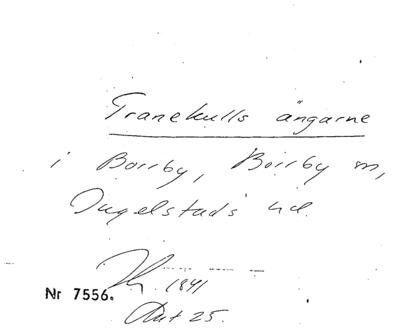 Tranekulls ängarne
i Borrby, Borrby sn,
Ingelstads hd.
1841
Nr 7556.
Akt 25.